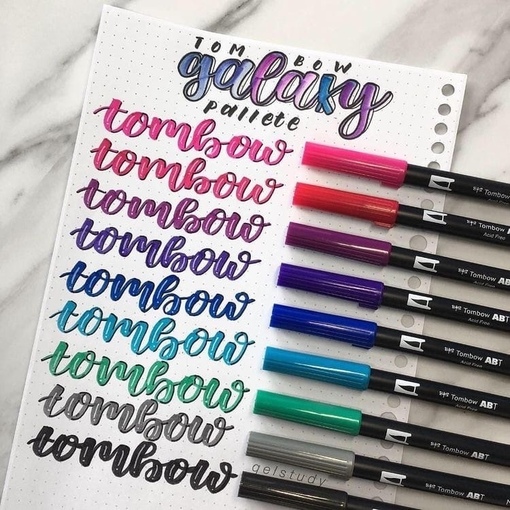 TOM BOW
galaxy
pallete
tombow
tombow
tombow
tombow
tombow
tombow
tombow
tombow
tombow
Tombow
Tombow AB
Acid Free
Tombow AB
Acid Free
Tombow ABT
Acid Free
Tombow ABT
Tombow ABT
Tombow ABT
Tombow ABT
gelstudy